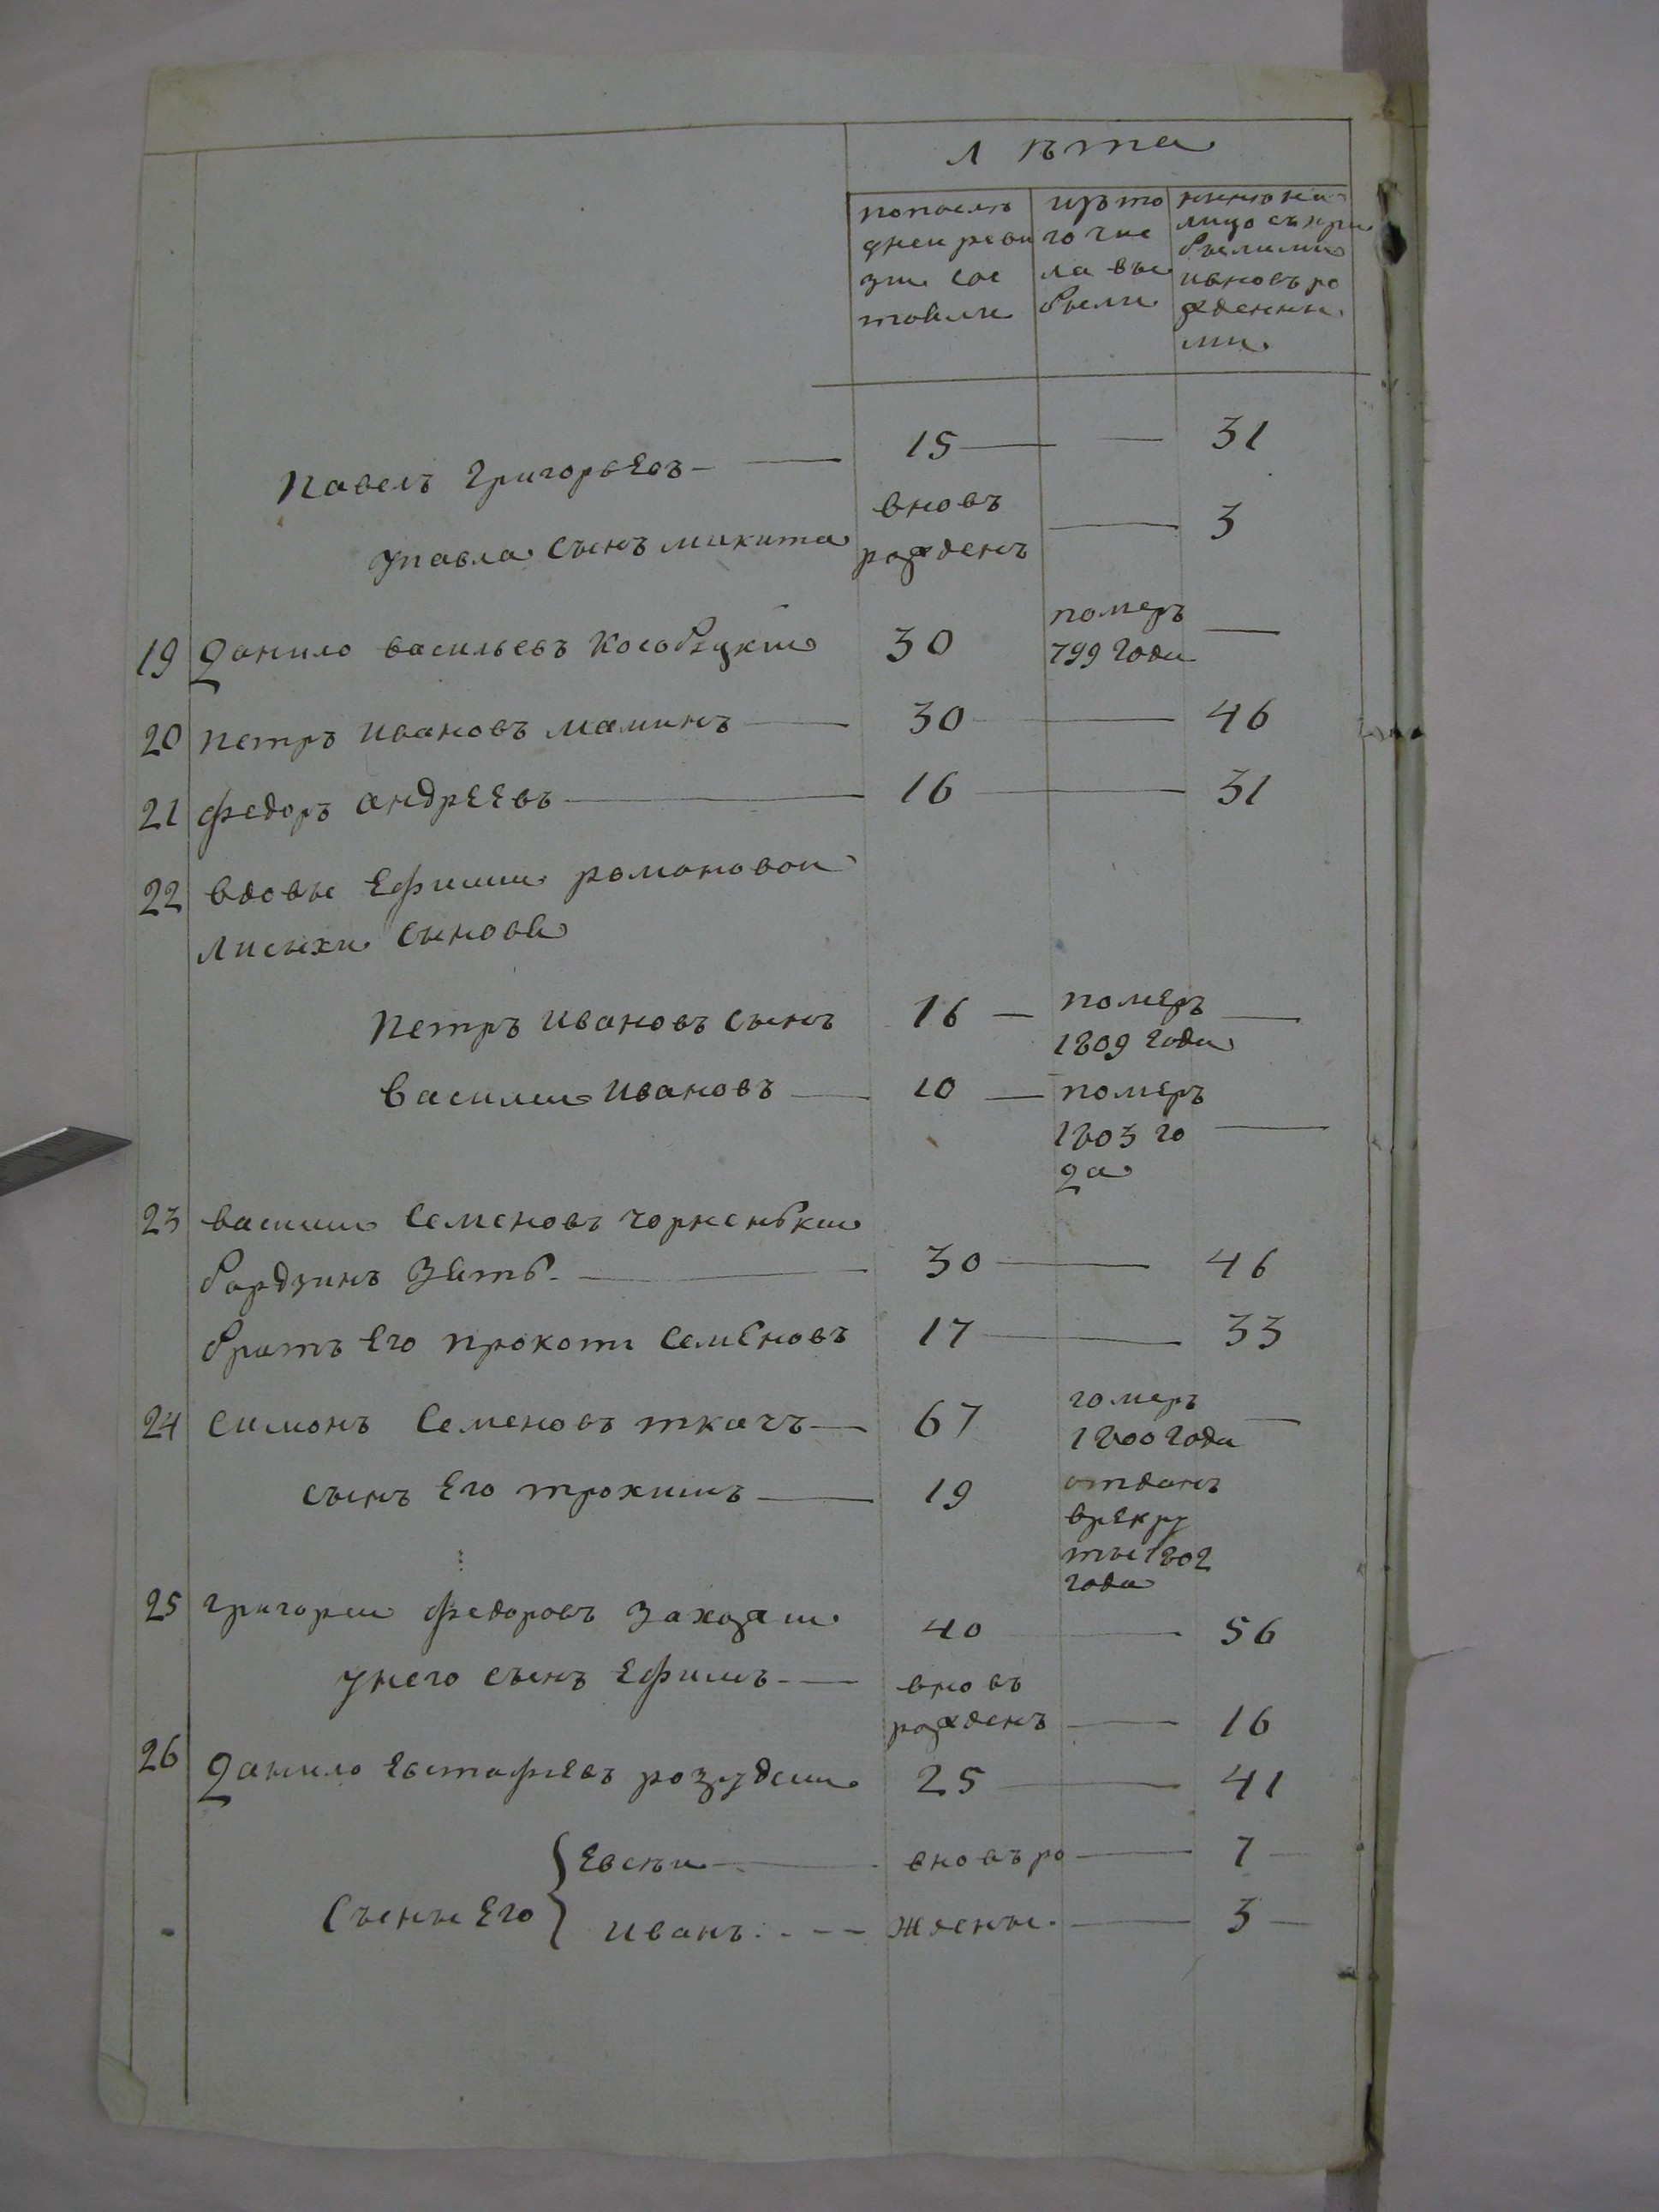 лѣта
попослѣ
дней реви
зии сос
тояли
изъ то
го чис
ла вы
были
нынѣ на
лицо съ при
былыми
и вновь ро
жденны
ми
Павелъ Григорьевъ — 15 — — 31
у павла сынъ микита вновь рожденъ — 3
19 Данило васильевъ Кособуцкии 30 померъ 799 года —
20 петръ ивановъ маминъ — 30 — 46
21 федоръ андреевъ — 16 — 31
22 вдовы Ефимии романовои
лисихи сыновя
петръ ивановъ сынъ 16 — померъ 1809 года —
василии ивановъ — 10 — померъ 1803 го —
да
23 василии семеновъ чорненькии
бардзинъ зять — 30 — 46
братъ Его прокопи семеновъ 17 — 33
24 симонъ семеновъ ткачъ — 67 померъ 1800 года —
сынъ Его трохимъ — 19 отданъ
в рекру
ты 1802
года
25 григореи федоровъ 40 — 56
у него сынъ Ефимъ — вновь
рожденъ — 16
26 Данило Евстафиевъ розудеи 25 — 41
Сыны Его { Евсѣи — вновь ро — 7
иванъ — жденые — 3 —